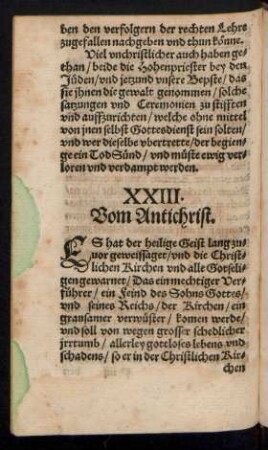 ben den verfolgern der rechten Lehre
zugefallen nachgeben vnd thun könne.
Viel vnchristlicher auch haben ge-
than / beide die Hohenpriester bey den
Jüden / vnd jetzund vnsere Bepste / das
sie jhnen die gewalt genommen / solche
satzungen vnd Ceremonien zu stifften
vnd auffzurichten / welche ohne mittel
von jnen selbst Gottesdienst sein solten /
vnd wer dieselbe vbertrette / der begien-
ge ein TodSünd / vnd müste ewig ver-
loren vnd verdampt werden.
XXIII.
Vom Antichrist.
ES hat der heilige Geist lang zu-
uor geweissaget / vnd die Christ-
lichen Kirchen vnd alle Gotseli-
gen gewarnet / Das ein mechtiger Ver-
führer / ein Feind des Sohns Gottes /
vnd seines Reichs / der Kirchen / ein
grausamer verwüster / komen werde /
vnd soll von wegen grosser schedlicher
jrrtumb / allerley gotloses lebens vnd
schadens / so er in der Christlichen Kir-
chen